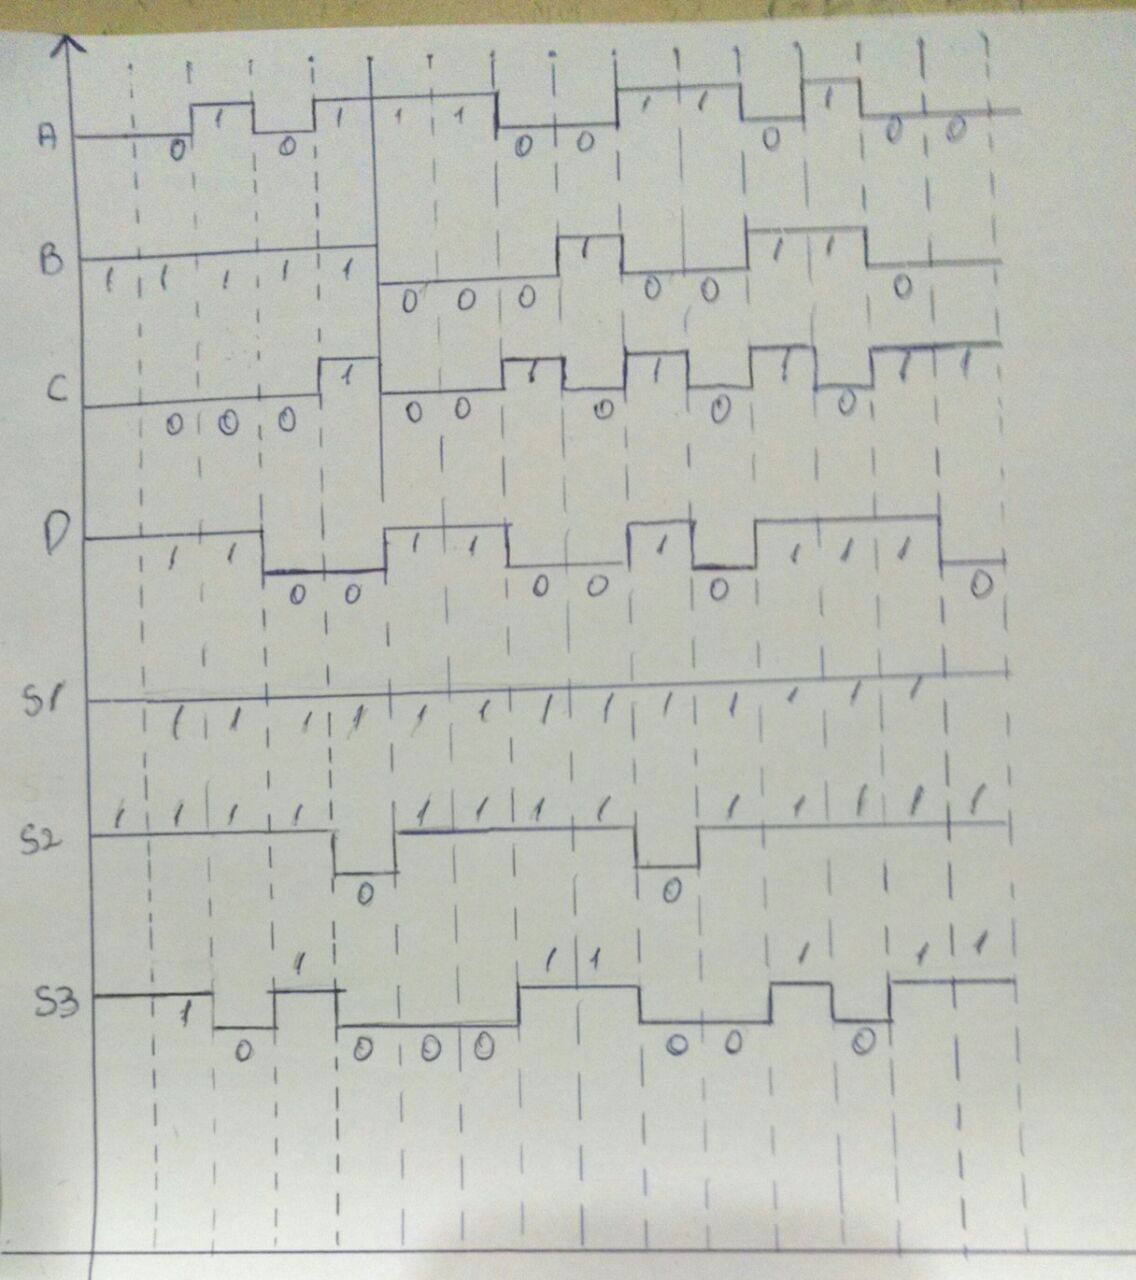 A 0 1 0 1 1 1 0 0 1 1 0 1 0 0
B 1 1 1 1 1 0 0 0 1 0 0 1 1 0
C 0 0 0 1 0 0 1 0 1 0 1 0 1 1
D 1 1 0 0 1 1 0 0 1 0 1 1 1 0
S1 1 1 1 1 1 1 1 1 1 1 1 1 1
S2 1 1 1 1 0 1 1 1 1 0 1 1 1 1 1
S3 1 0 1 0 0 0 1 1 0 0 1 0 1 1